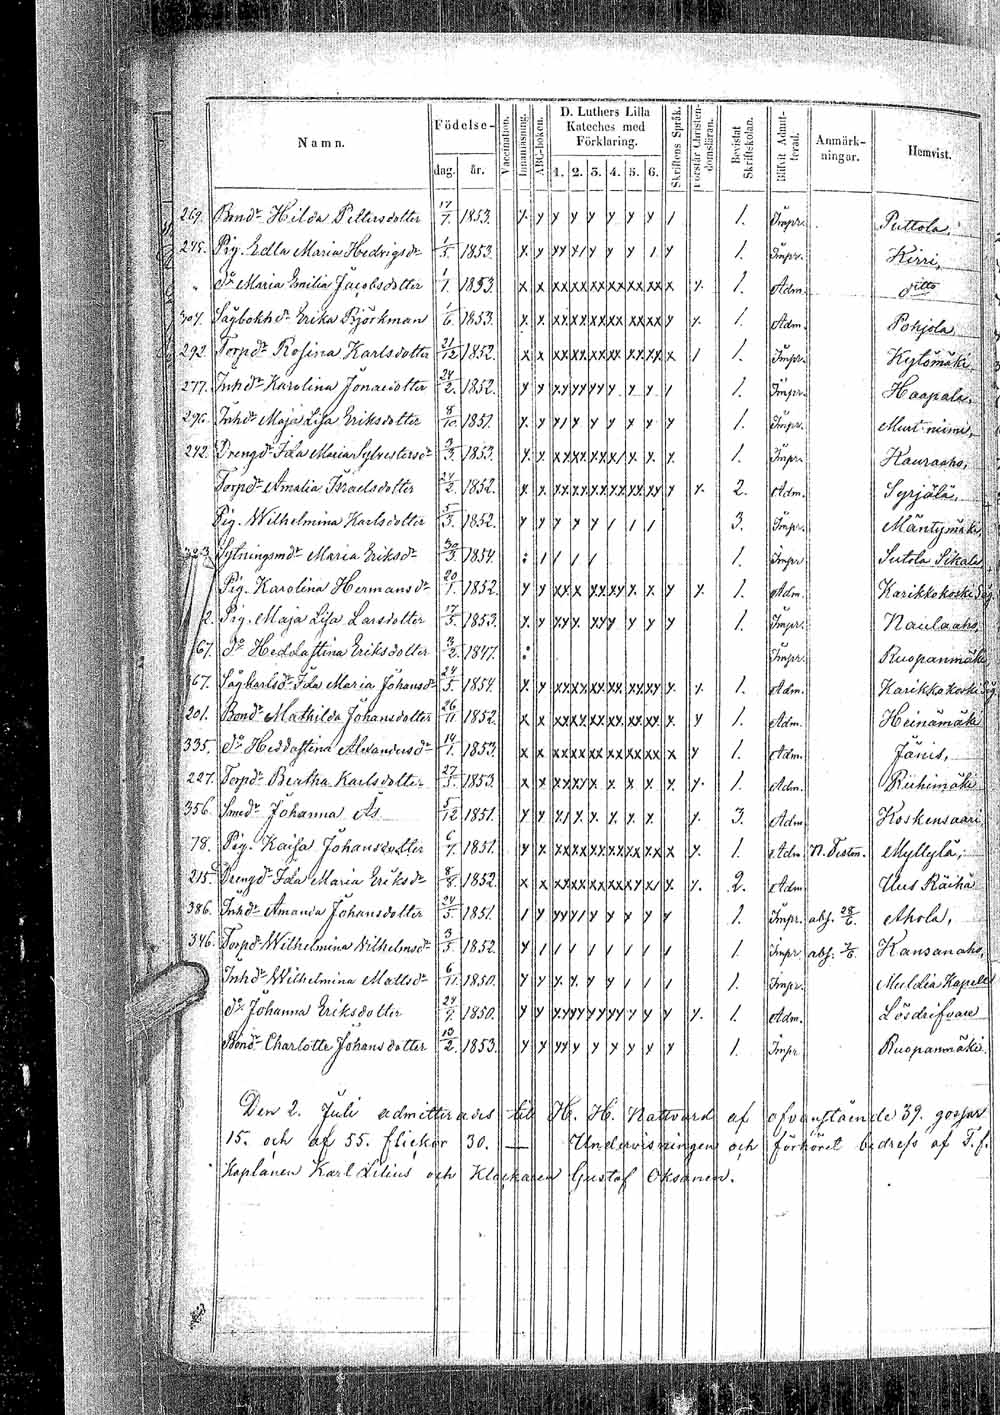 Namn. Födelse- dag. år. Vaccination. Innanläsning. ABC-boken. D. Luthers Lilla Kateches med Förklaring. 1. 2. 3. 4. 5. 6. Skriftens Språk. Förstår Christendomsläran. Bevistat Skriftskolan. Blifvit Admitterad. Anmärkningar. Hemvist.
269. Bond dr Hilda Pettersdotter 17/7. 1853. 1. Impr. Puttola,
245. Pig. Edla Maria Hedvigsdr 1/5. 1853. 1. Impr. Kirri,
" Do Maria Emilia Jacobsdotter 1/1. 1853. 1. Adm. ditto
307. Sågbokh dr Erika Björkman 1/6. 1853. 1. Adm. Pohjola
292. Torp dr Rosina Karlsdotter 21/12. 1852. 1. Impr. Kylömäki
277. Inh dr Karolina Jonasdotter 24/2. 1852. 1. Impr. Haapala,
296. Inh dr Maja Lisa Eriksdotter 8/10. 1851. 1. Impr. Murtoniemi,
242. Dreng dr Ida Maria Sylvestersdr 3/3. 1853. 1. Impr. Kauraaho,
Torp dr Amalia Israelsdotter 24/2. 1852. 2. Adm. Syrjälä,
Pig. Wilhelmina Karlsdotter 5/3. 1852. 3. Impr. Mäntymäki
323. Sytningsm dr Maria Eriksdr 30/3. 1854. 1. Impr Sutola Sikala
Pig. Karolina Hermansdr 20/1. 1852. 1. Adm. Karikkokoski Såg
2. Pig. Maja Lisa Larsdotter 17/5. 1853. 1. Impr. Naulaaho,
67. Do Heddastina Eriksdotter 3/2. 1847. Impr. Ruopanmäki
67. Sågkarls dr Ida Maria Johansdr 24/5. 1854. 1. Adm. Karikkokoski Såg
201. Bond dr Mathilda Johansdotter 26/11. 1852. 1. Adm. Heinämäki
335. Do Heddastina Alexandersdr 14/1. 1853. 1. Adm. Jänis,
227. Torp dr Beatha Karlsdotter 27/5. 1853 1. Adm. Riihimäki
356. Smed dr Johanna Ås 5/12 1851. 3. Adm. Koskensaari,
78. Pig. Kaisa Johansdotter 6/7. 1851. 1. Adm N. Testam. Myllylä,
215. Dreng dr Ida Maria Eriksdr 8/8. 1852. 2. Adm Uus Räihä
386. Inh dr Amanda Johansdotter 24/5. 1851. 1. Impr. abs. 28/6. Ahola,
346. Torp dr Wilhelmina Wilhelmsdr 3/5 1852. 1. Impr. abs. 2/6. Kansanaho,
Inh dr Wilhelmina Mattsdr 6/11. 1850. 1. Impr. Multia Kapell
Do Johanna Eriksdotter 24/7. 1850. 1. Adm. Lösdrifvare
Bond dr Charlotta Johansdotter 10/2. 1853. 1. Impr Ruopanmäki
Den 2. Juli admitterades till H. H. Nattvard af ofvanstående 39. gossar
15. och af 55. flickor 30. — Undervisningen och förhöret bedrefs af T.f.
Kaplanen Karl Lilius och Klockaren Gustaf Oksanen.